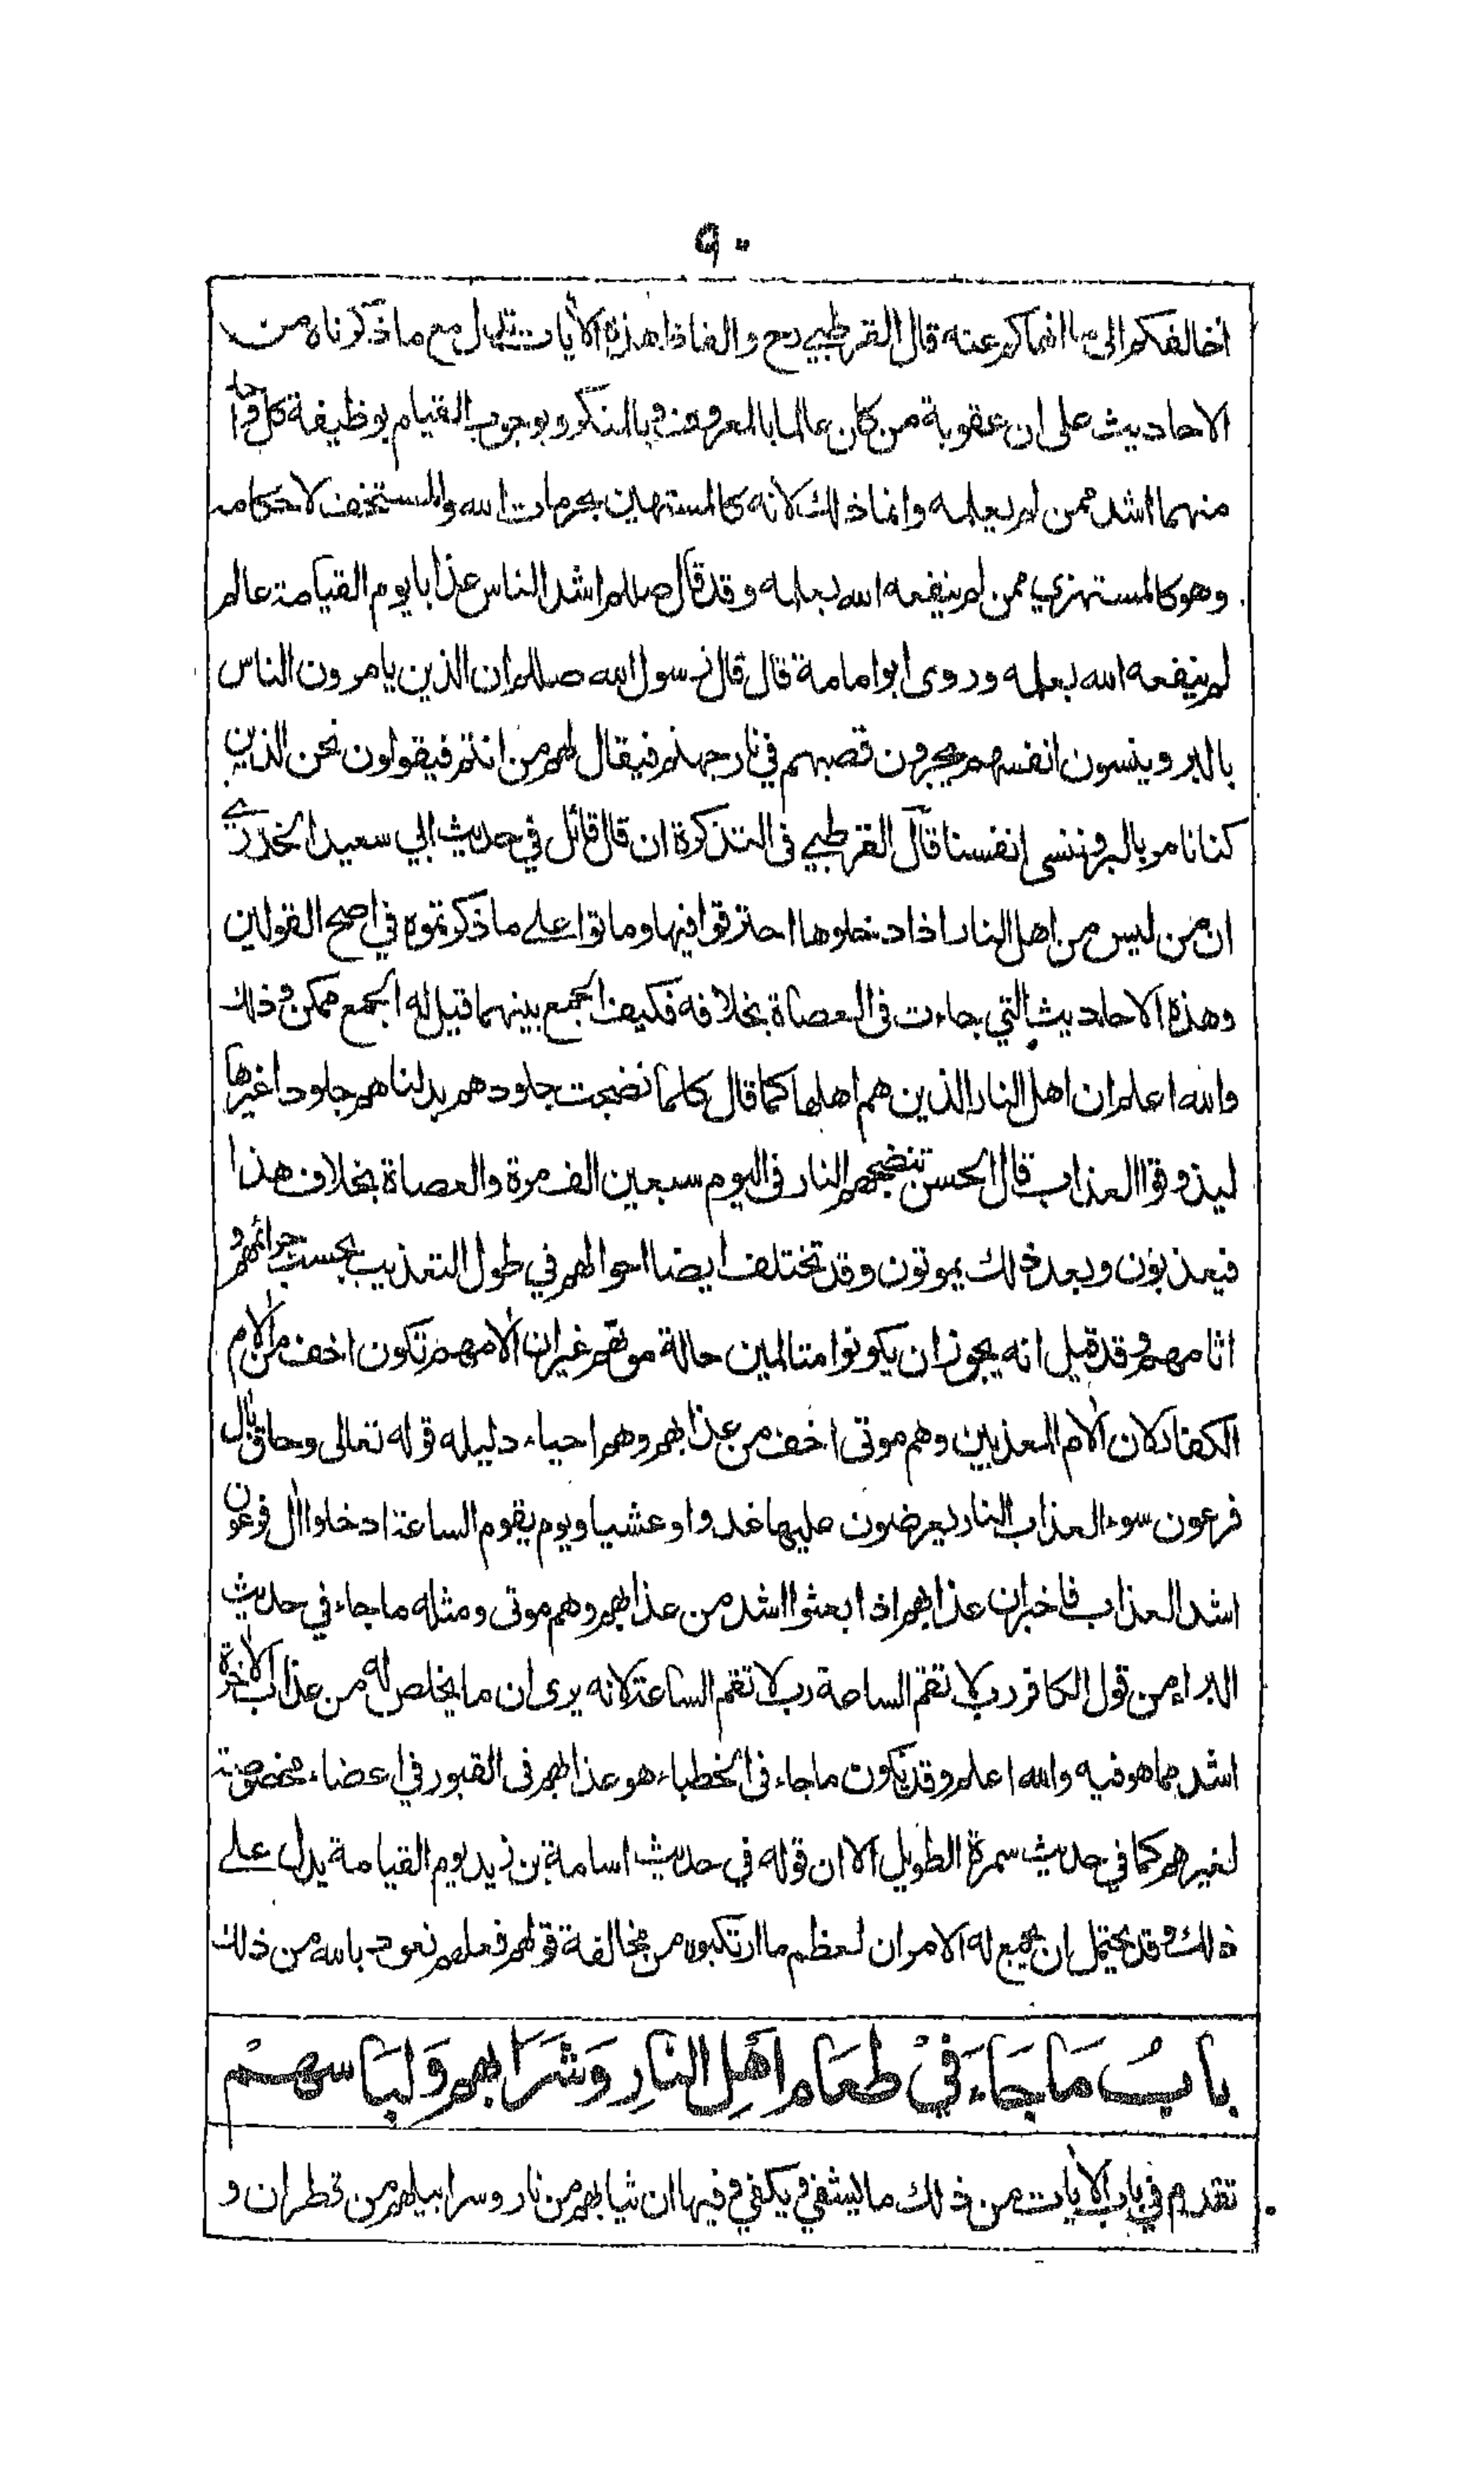 ٩٠
اخالفكم الى ما انهاكم عنه قال القرطبي رح والفاظ هذه الأيات تدل مع ما ذكرناه من
الاحاديث على ان عقوبة من كان عالما بالمعروف وبالمنكر وبوجوب القيام بوظيفة كل واحد
منهما اشد ممن لم يعلمه وانما ذلك لانه كالمستهين بحرمات الله والمستخف لاحكامه
وهو كالمستهزي ممن لم ينفعه الله بعلمه وقد قال صللم اشد الناس عذابا يوم القيامة عالم
لم ينفعه الله بعلمه وروى ابو امامة قال قال رسول الله صللم ان الذين يامرون الناس
بالبر وينسون انفسهم يجرون قصبهم في نار جهنم فيقال لهم من انتم فيقولون نحن الذين
كنا نامر بالبر وننسى انفسنا قال القرطبي في التذكرة ان قال قائل في حديث ابي سعيد الخدري
ان من ليس من اهل النار اذا دخلوها احترقوا فيها وماتوا على ما ذكرتموه في اصح القولين
وهذه الاحاديث التي جاءت في العصاة بخلافه فكيف الجمع بينهما قيل له الجمع ممكن وذلك
والله اعلم ان اهل النار الذين هم اهلها كما قال كلما نضجت جلودهم بدلناهم جلودا غيرها
ليذوقوا العذاب قال الحسن تنضجهم النار في اليوم سبعين الف مرة والعصاة بخلاف هذا
فيعذبون وبعد ذلك يموتون وقد تختلف ايضا احوالهم في طول التعذيب بحسب جرائمهم و
اثامهم وقد قيل انه يجوز ان يكونوا متالمين حالة موتهم غير ان الامهم تكون اخف من الام
الكفار لان الام المعذبين وهم موتى اخف من عذابهم وهم احياء دليله قوله تعالى وحاق بال
فرعون سوء العذاب النار يعرضون عليها غدوا وعشيا ويوم يقوم الساعة ادخلوا ال فرعون
اشد العذاب فاخبر ان عذابهم اذا بعثوا اشد من عذابهم وهم موتى ومثله ما جاء في حديث
البراء من قول الكافر رب لا تقم الساعة رب لا تقم الساعة لانه يرى ان ما يخلص له من عذاب الاخرة
اشد مما هو فيه والله اعلم وقد تكون ما جاء في الخطباء هو عذابهم في القبور في اعضاء مخصوصة
لغيرهم كما في حديث سمرة الطويل الا ان قوله في حديث اسامة بن زيد يوم القيامة يدل على
ذلك وقد يحتمل ان يجمع له الامران لعظم ما ارتكبوه من مخالفة قولهم فعلهم نعوذ بالله من ذلك
بابُ مَا جَاءَ فِيْ طَعَام اَهْلِ النارِ وَشَرَابهم وَلبَاسهم
تقدم في باب الأيات من ذلك ما يشفي ويكفي وفيها ان ثيابهم من نار وسرابيلهم من قطران و